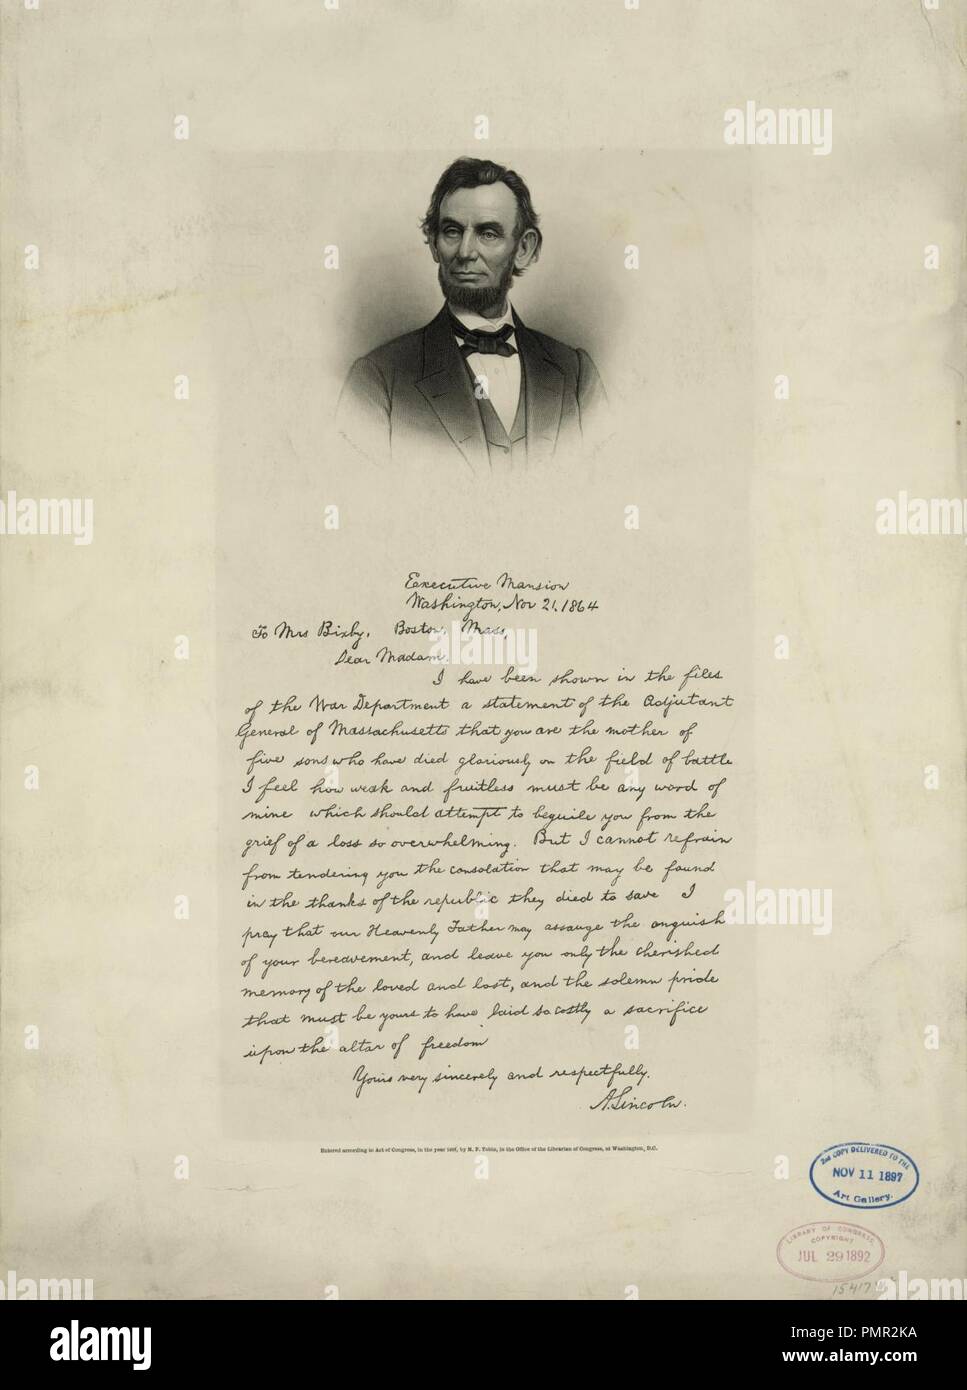 Executive Mansion
Washington, Nov 21, 1864
To Mrs Bixby, Boston, Mass,
Dear Madam,
I have been shown in the files
of the War Department a statement of the Adjutant
General of Massachusetts that you are the mother of
five sons who have died gloriously on the field of battle
I feel how weak and fruitless must be any word of
mine which should attempt to beguile you from the
grief of a loss so overwhelming. But I cannot refrain
from tendering you the consolation that may be found
in the thanks of the republic they died to save I
pray that our Heavenly Father may assuage the anguish
of your bereavement, and leave you only the cherished
memory of the loved and lost, and the solemn pride
that must be yours to have laid so costly a sacrifice
upon the altar of freedom
Yours very sincerely and respectfully.
A. Lincoln.
Entered according to Act of Congress, in the year by M. F. Tobin, in the Office of the Librarian of Congress, at Washington, D.C.
2nd COPY DELIVERED TO THE
NOV 11 1897
Art Gallery.
LIBRARY OF CONGRESS,
COPYRIGHT
JUL 29 1892
alamy
alamy
alamy
alamy
alamy
alamy
alamy
Image ID: PMR2KA
www.alamy.com